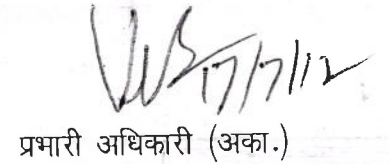 17/7/12
प्रभारी अधिकारी (अका.)